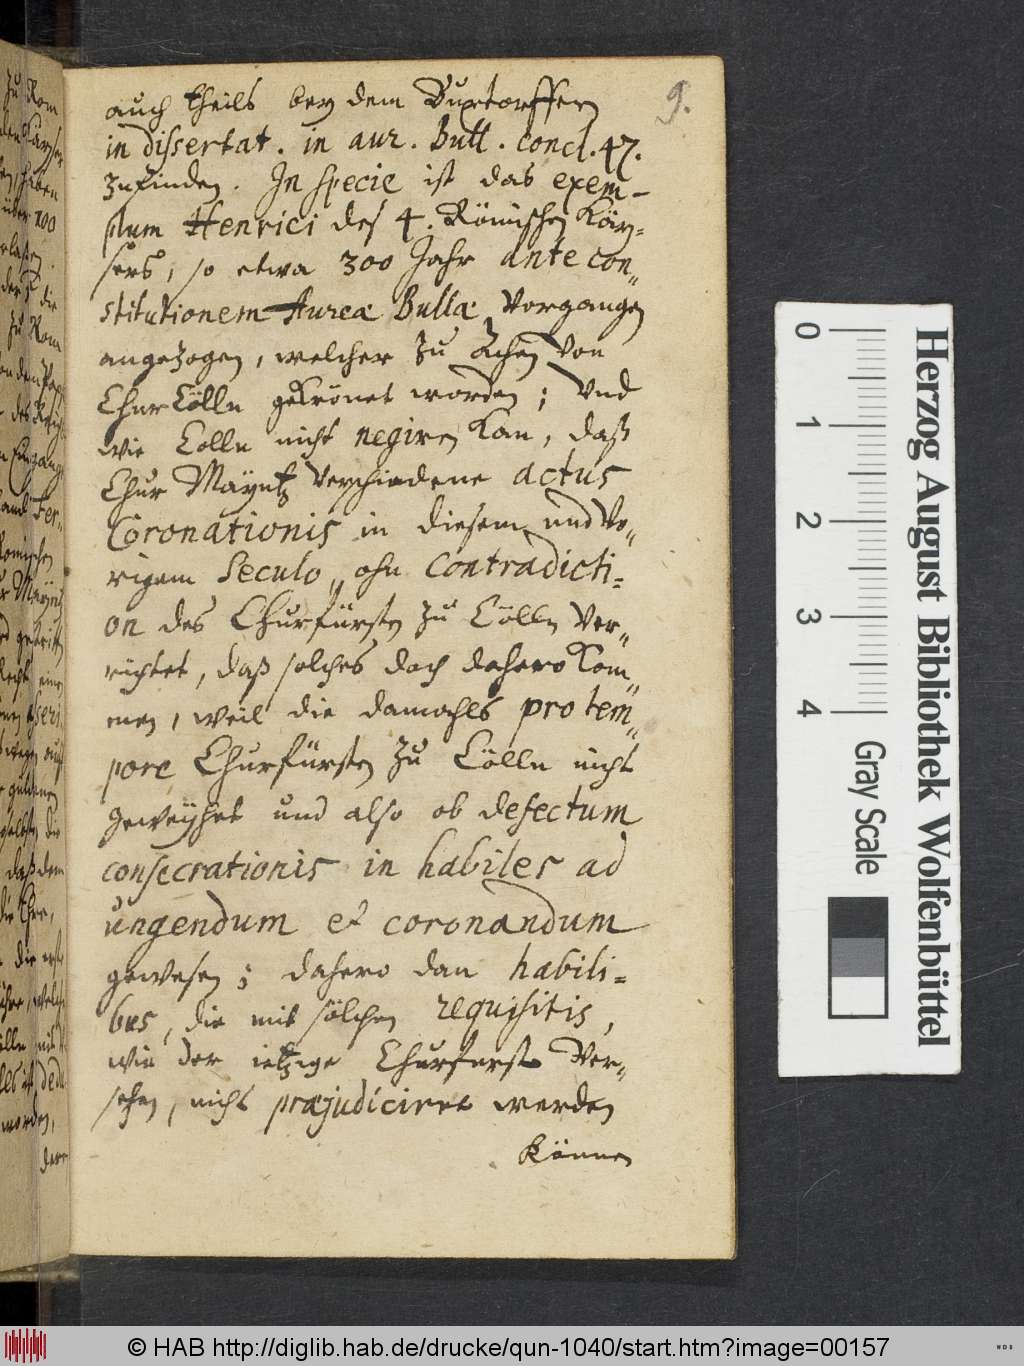 9.
auch theils bey dem Buxtorffen
in dissertat. in aur. Bull. concl. 47.
zufinden. In specie ist das exem-
plum Henrici des 4. Römischen Käy-
sers, so etwa 300 Jahr ante con-
stitutionem Aureæ Bullæ vorgangen
angezogen, welcher zu Achen von
Chur Cölln gekrönet worden; Vnd
wie Colln nicht negiren kan, daß
Chur Mayntz verschiedene actus
Coronationis in diesem und vo-
rigem Seculo, ohn Contradicti-
on des Churfürsten zu Cölln ver-
richtet, daß solches doch dahero kom-
men, weil die damahls pro tem-
pore Churfürsten zu Cölln nicht
geweyhet und also ob defectum
consecrationis in habiles ad
ungendum et coronandum
gewesen; dahero dan habili-
bus, die mit solchen requisitis,
wie der ietzige Churfurst ver-
sehen, nicht præjudiciret werden
können
Herzog August Bibliothek Wolfenbüttel
0 1 2 3 4
Gray Scale
© HAB http://diglib.hab.de/drucke/qun-1040/start.htm?image=00157